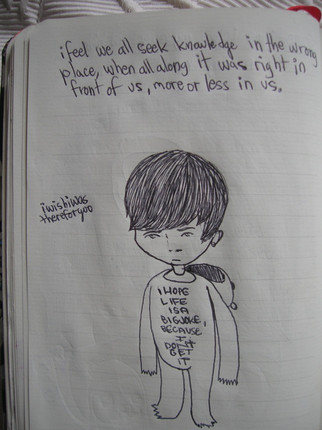 i feel we all seek knowledge in the wrong
place, when all along it was right in
front of us, more or less in us.
iwishiwas
thereforyoo
I HOPE
LIFE
IS A
BIG JOKE,
BECAUSE
I
DON'T
GET
IT